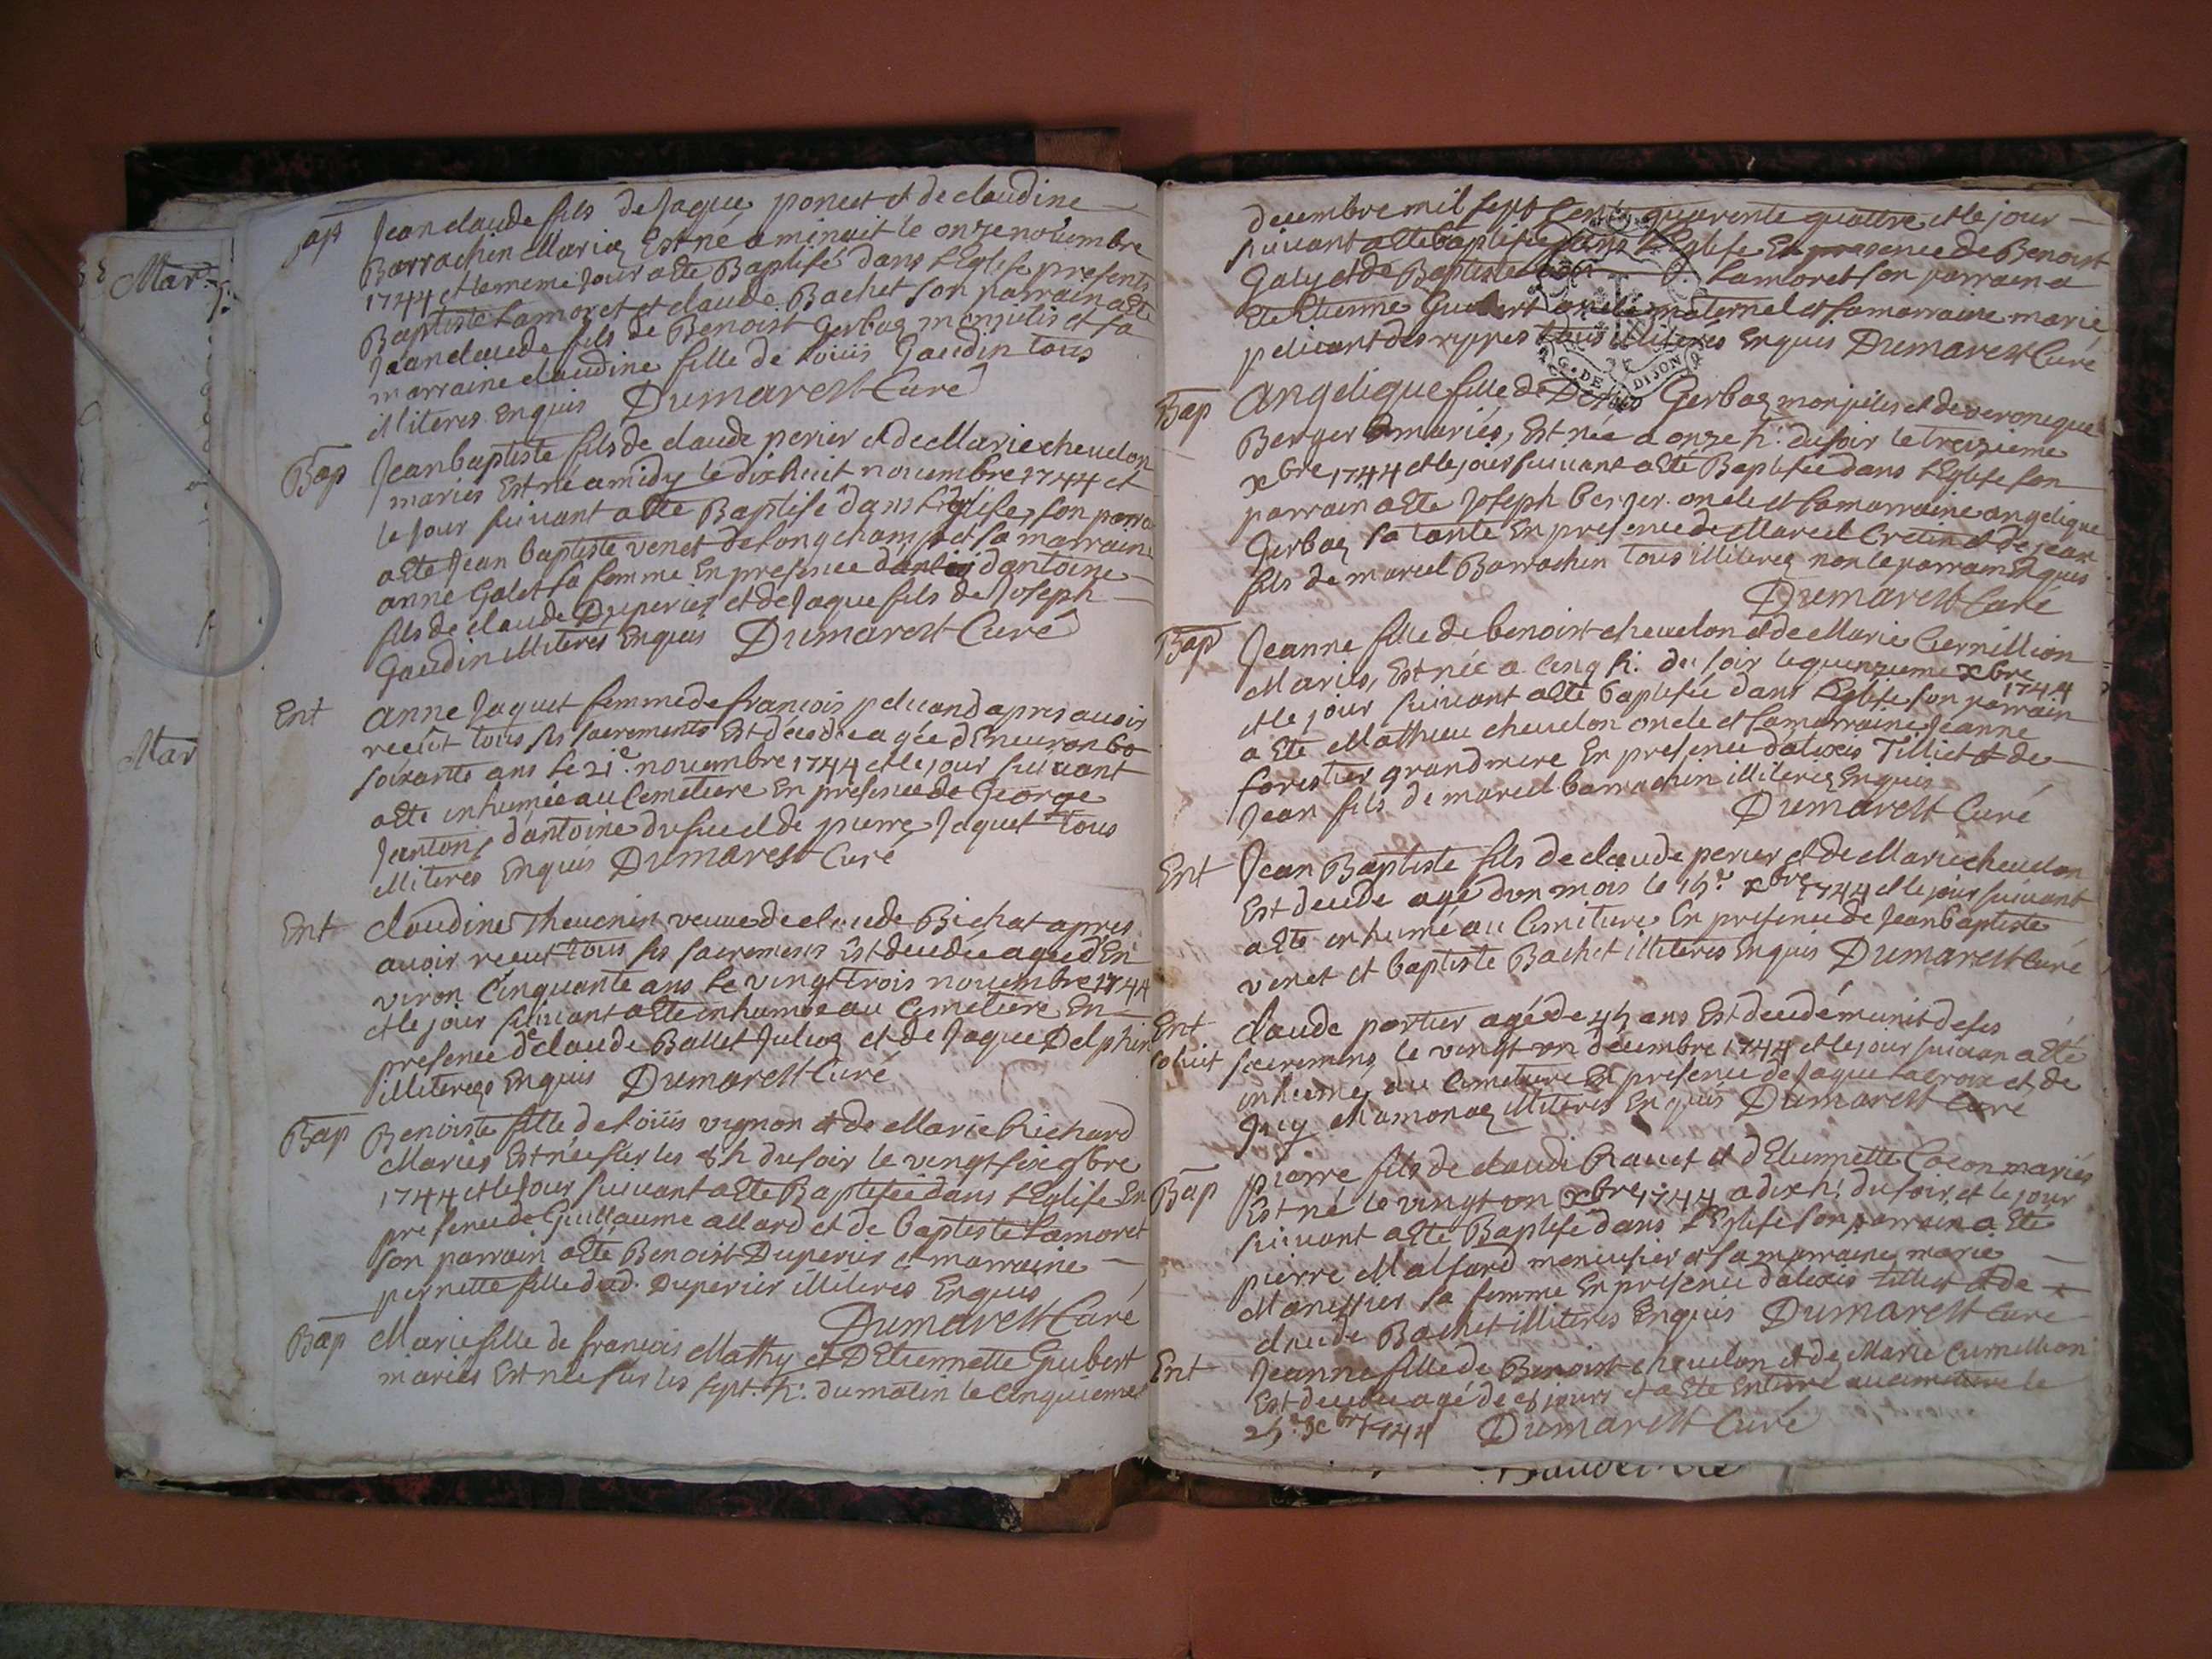 Mar
Mar
Bap Jean claude fils de Jaque poncet et de claudine
Barrachin Mariez Est né a minuit le onze novembre
1744 et le meme Jour a Eté Baptisé dans l'Eglise presents
Baptiste Lamoret et claude Bachet son parrain a Eté
Jean claude fils de Benoist Gerbaz et sa
marraine claudine fille de Loüis Gaudin tous
illiteres Enquis Dumarest Curé
Bap Jean baptiste fils de claude perier et de Marie chevelon
mariés Est né a midy le dixhuit novembre 1744 et
le Jour suivant a Eté Baptisé dans l'Eglise, son parra
a Eté Jean baptiste venet de Longchamp et sa marraine
anne Galet sa femme En presence d'antoine
fils de claude Duperier et de Jaque fils de Joseph
Gaudin illiteres Enquis Dumarest Curé
Ent anne Jaquet femme de françois pelicand apres avoir
receüt tous ses sacrements Est décédée agée d'Environ 60
soixante ans le 21e novembre 1744 et le jour suivant
a Eté inhumée au Cemetiere En presence de George
Janton, d'antoine et de pierre Jaquet tous
illiteres Enquis Dumarest Curé
Ent claudine Thevenin veuve de claude Bichat apres
avoir receut tous ses sacremens Est decedée agée d'En
viron Cinquante ans le vingt trois novembre 1744
et le jour suivant a Eté inhumée au Cemetiere En
presence de claude Ballet Julioz et de Jaque Delphin
illiterés Enquis Dumarest Curé
Bap Benoiste fille de Loüis vignon et de Marie Richard
Mariés Est née sur les 8 h du soir le vingt six 9bre
1744 et le Jour suivant a Eté Baptisée dans l'Eglise En
presence de Guillaume allard et de baptiste Lamoret
son parrain a Eté Benoist Duperier et marraine
pernette fille dud. Duperier illiteres Enquis
Dumarest Curé
Bap Marie fille de françois Mathy et D'Etiennette Guibert
mariés Est née sur les sept h. du matin le Cinquieme
decembre mil sept Cents quarente quattre et le jour
suivant a Eté baptisée dans l'Eglise En presence de Benoist
Galy et de Baptiste Lamoret son parrain a
Eté Etienne Guibert oncle maternel et sa marraine marie
pelicant des rippes tous illiterés Enquis Dumarest Curé
G. DE DIJON
Bap Angelique fille de Gerbaz et de veronique
Berger mariés, Est née a onze h. du soir le treizieme
xbre 1744 et le jour suivant a Eté Baptisée dans l'Eglise son
parrain a Eté Joseph berger oncle et sa marraine angelique
Gerbaz sa tante En presence de Marcel Cretin et de jean
fils de marcel Barrachin tous illiterez non le parrain Enquis
Dumarest Curé
Bap Jeanne fille de benoist chevelon et de Marie Cernillion
Mariés, Est née a Cinq h. du soir le quinzieme xbre
1744
et le jour suivant a Eté baptisée dans l'Eglise son parrain
a Eté Mathieu chevelon oncle et sa marraine Jeanne
forestier grandmere En presence d'alexis Tilliet et de
Jean fils de marcel barrachin illiteriez Enquis
Dumarest Curé
Ent Jean Baptiste fils de claude perier et de Marie chevelon
Est decede agé d'un mois le 15e xbre 1744 et le jour suivant
a Eté inhumé au Cemitiere En presence de Jean baptiste
venet et baptiste Bachet illiteres Enquis Dumarest Curé
Ent claude portier agé de 45 ans Est decedé munit de ses
soluit sacremens le vingt un décembre 1744 et le jour suivan a Eté
inhumez au Cemetiere En presence de Jaque Lacroix et de
Guy Mamonaz illiteres Enquis Dumarest Curé
Bap pierre fils de claude Ravet et d'Etiennette Cocon mariés
Est né le vingt un xbre 1744 a dix h. du soir et le jour
suivant a Eté Baptisé dans l'Eglise son parrain a Eté
pierre Malfard menusier et sa marraine marie
Manissier sa femme En presence d'alexis tilliet et de
claude Bachet illiteres Enquis Dumarest Curé
Ent Jeanne fille de Benoist chevelon et de Marie Curnillion
Est decedée agé de 8 jours et a Eté Enterré au cimetiere le
25e xbre 1744 Dumarest Curé